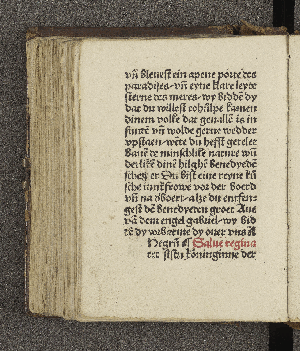 vn̄ bleuest ein apene porte des
paradises · vn̄ eyne klare leyde
sterne des meres · wy biddē dy
dat du willest tohulpe kamen
dinem volke dat geuallē is in
sunde vn̄ wolde gerne wedder
vpstaen · wēte du hefft geteler
bauē de minschlike nature wū
derlikē dinē hilghē benedyedē
schepper Du bist eine reyne kū
sche iunkfrowe vor der boerd
vn̄ na d̓boert · alze du entfen
gest dē benedyeten groet Aue
vā dem engel gabriel · wy bid
dē dy vorbarme dy ouer vns A
Negen̄ ¶ Salue regina
et sistu koninginne der